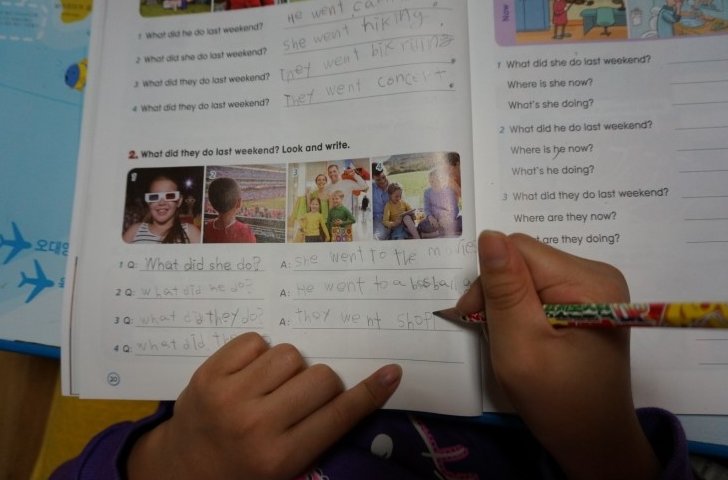 1 What did he do last weekend? He went ca
2 What did she do last weekend? She went hiking.
3 What did they do last weekend? They went
4 What did they do last weekend? They went concert.
2. What did they do last weekend? Look and write.
1 2 3 4
1 Q: What did she do? A: she went to the movies
2 Q: what did he do? A: He went to a
3 Q: what did they do? A: they went shopp
4 Q: what did the
20
Now
1 What did she do last weekend?
Where is she now?
What's she doing?
2 What did he do last weekend?
Where is he now?
What's he doing?
3 What did they do last weekend?
Where are they now?
are they doing?
오대양